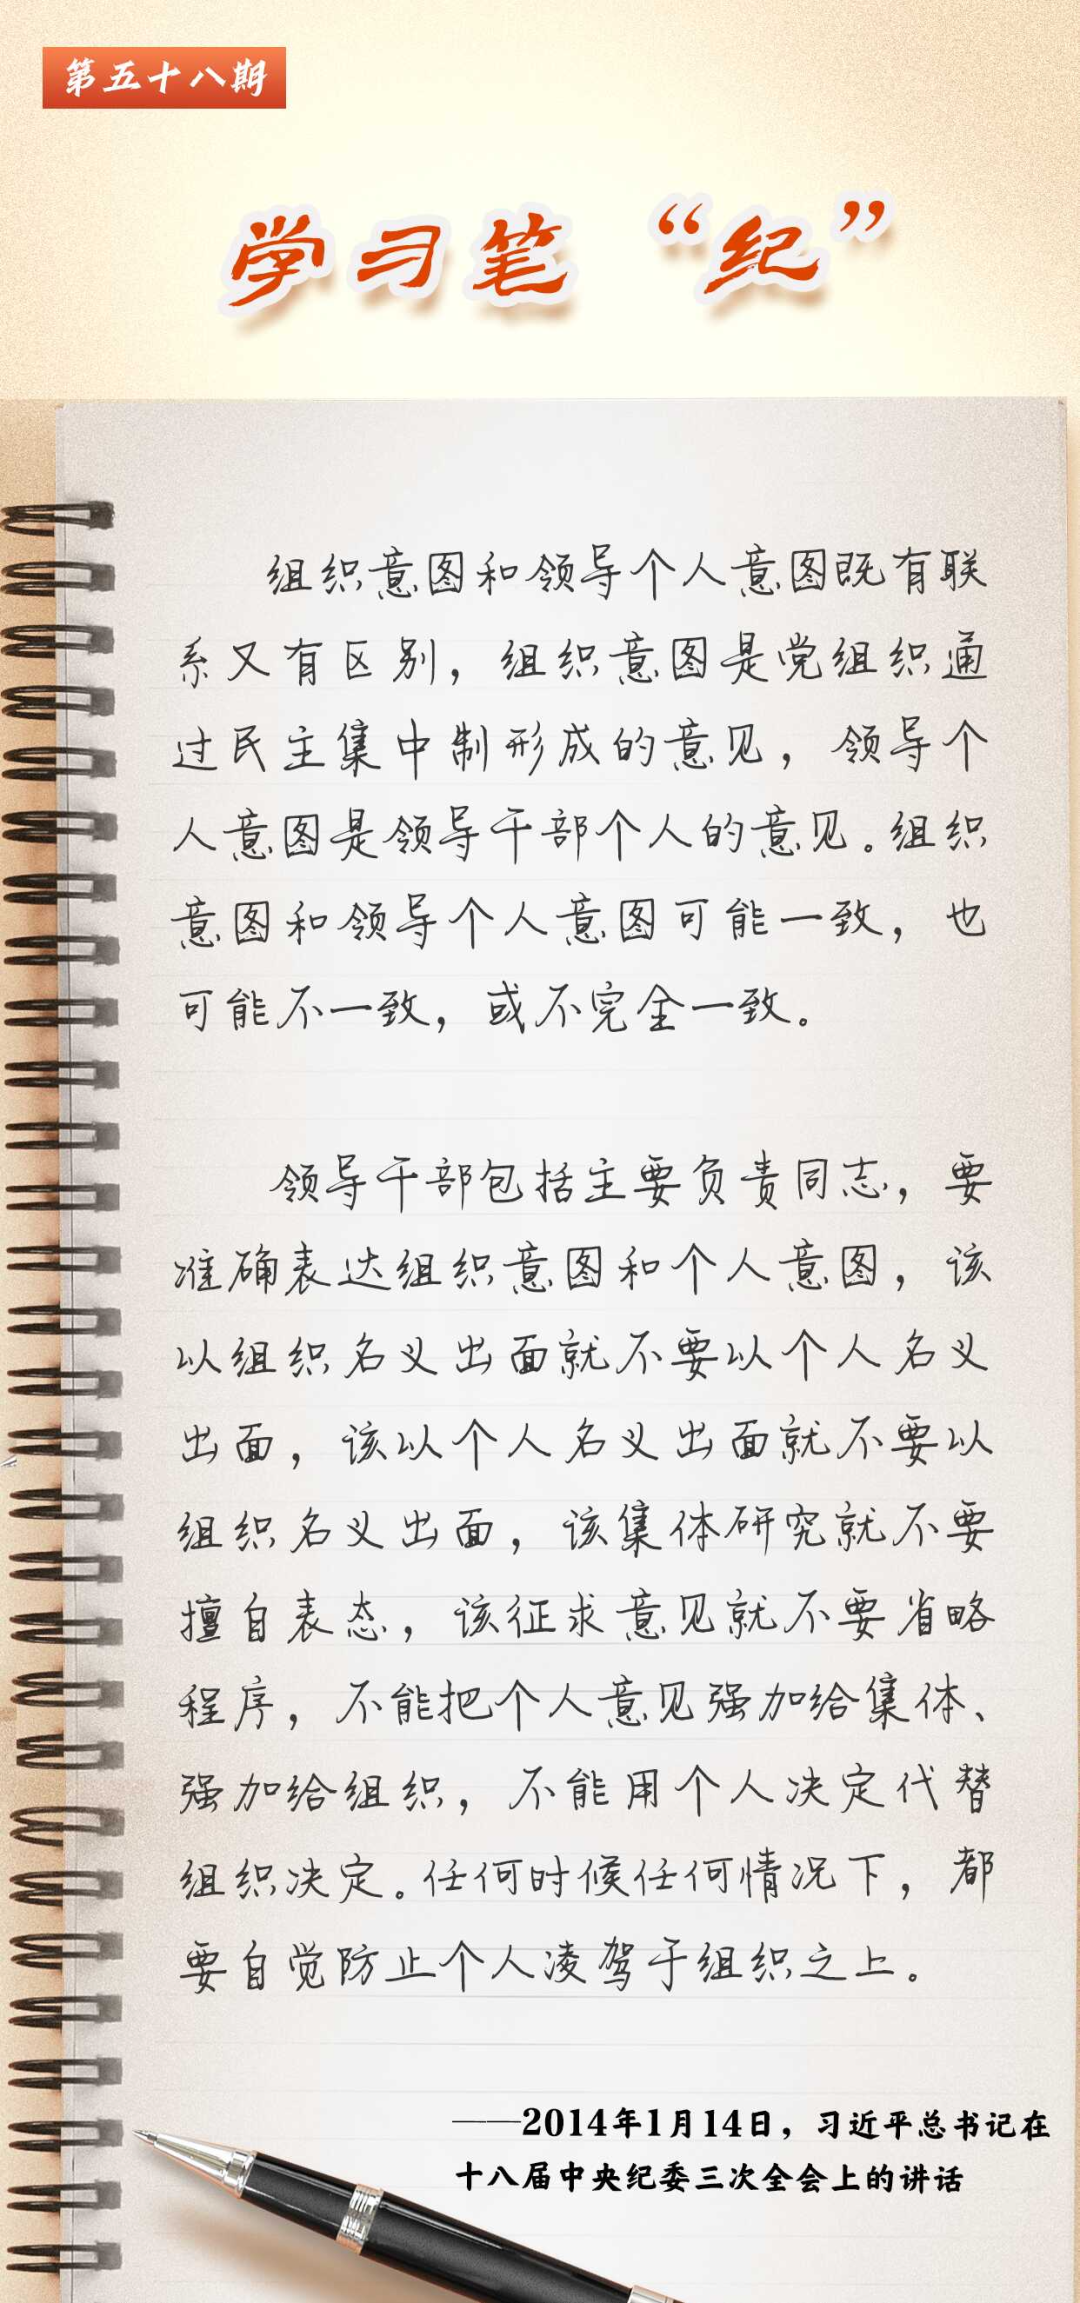 第五十八期
学习笔“纪”
组织意图和领导个人意图既有联
系又有区别，组织意图是党组织通
过民主集中制形成的意见，领导个
人意图是领导干部个人的意见。组织
意图和领导个人意图可能一致，也
可能不一致，或不完全一致。
领导干部包括主要负责同志，要
准确表达组织意图和个人意图，该
以组织名义出面就不要以个人名义
出面，该以个人名义出面就不要以
组织名义出面，该集体研究就不要
擅自表态，该征求意见就不要省略
程序，不能把个人意见强加给集体、
强加给组织，不能用个人决定代替
组织决定。任何时候任何情况下，都
要自觉防止个人凌驾于组织之上。
——2014年1月14日，习近平总书记在
十八届中央纪委三次全会上的讲话